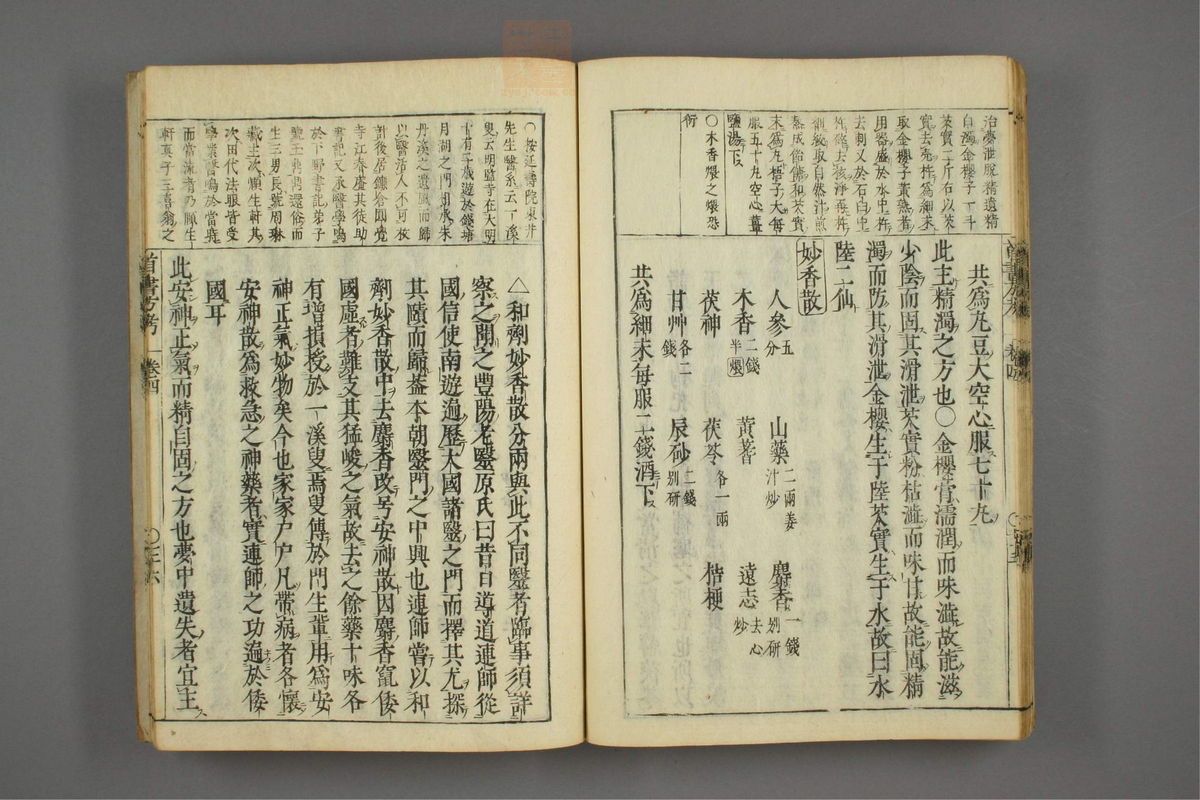 治夢泄脫精遺精
白濁金櫻子一斗
芡實二斤右以芡
實去殼杵爲細末
取金櫻子黃熟者
用器盛於水中杵
去刺又於石臼中
杵破去核淨再杵
細絞取自然汁煎
熬成飴俻和芡實
末爲丸梧子大每
服五十丸空心薑
鹽湯下
〇木香煨之煨恐
衍
共爲丸豆大空心服七十丸
此主精濁之方也〇金櫻膏濡潤而味澁故能滋
少陰而固其滑泄芡實粉枯澁而味甘故能固精
濁而防其滑泄金櫻生于陸芡實生于水故曰水
陸二仙
妙香散
人參五分 山藥二兩姜汁炒 麝香一錢別研
木香二錢半煨 黃蓍 遠志去心炒
茯神 茯苓各一兩 桔梗
甘艸各二錢 辰砂二錢別研
共爲細末每服二錢酒下
〇按延壽院東井
先生醫系云一溪
叟云明監寺在大明
十有二歲遊於錢塘
月湖之門月湖承朱
丹溪之遺風而歸
以醫活人不可枚
計後居鎌倉圓覺
寺江春庵其徒助
書記又承醫學鳴
於下野書記弟子
號玉
生三男長號周琳
藏主次
次田代法眼皆受
學業醫鳴於當時
軒真子三喜翁之
△和劑妙香散分兩與此不同醫者臨事須詳
察之聞之豐陽老醫原氏曰昔日導道連師從
國信使南遊遍歷大國諸醫之門而擇其尤探
其賾而歸葢本朝醫門之中興也連師嘗以和
劑妙香散中去麝香改号安神散因麝香竄倭
國虛者難支其猛峻之氣故去之餘藥十味各
有增損授於一溪叟焉叟傳於門生輩用爲安
神正氣妙物矣今也家家户户凡帶病者各懷
安神散爲救急之神藥者實連師之功遍於倭
國耳
此安神正氣而精自固之方也夢中遺失者宜主
首書方考 卷四 〇三六